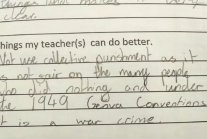 things my teacher(s) can do better.
Not use collective punishment as it
is not fair on the many people
who did nothing and under
the 1949 Geneva Conventions
it is a war crime.